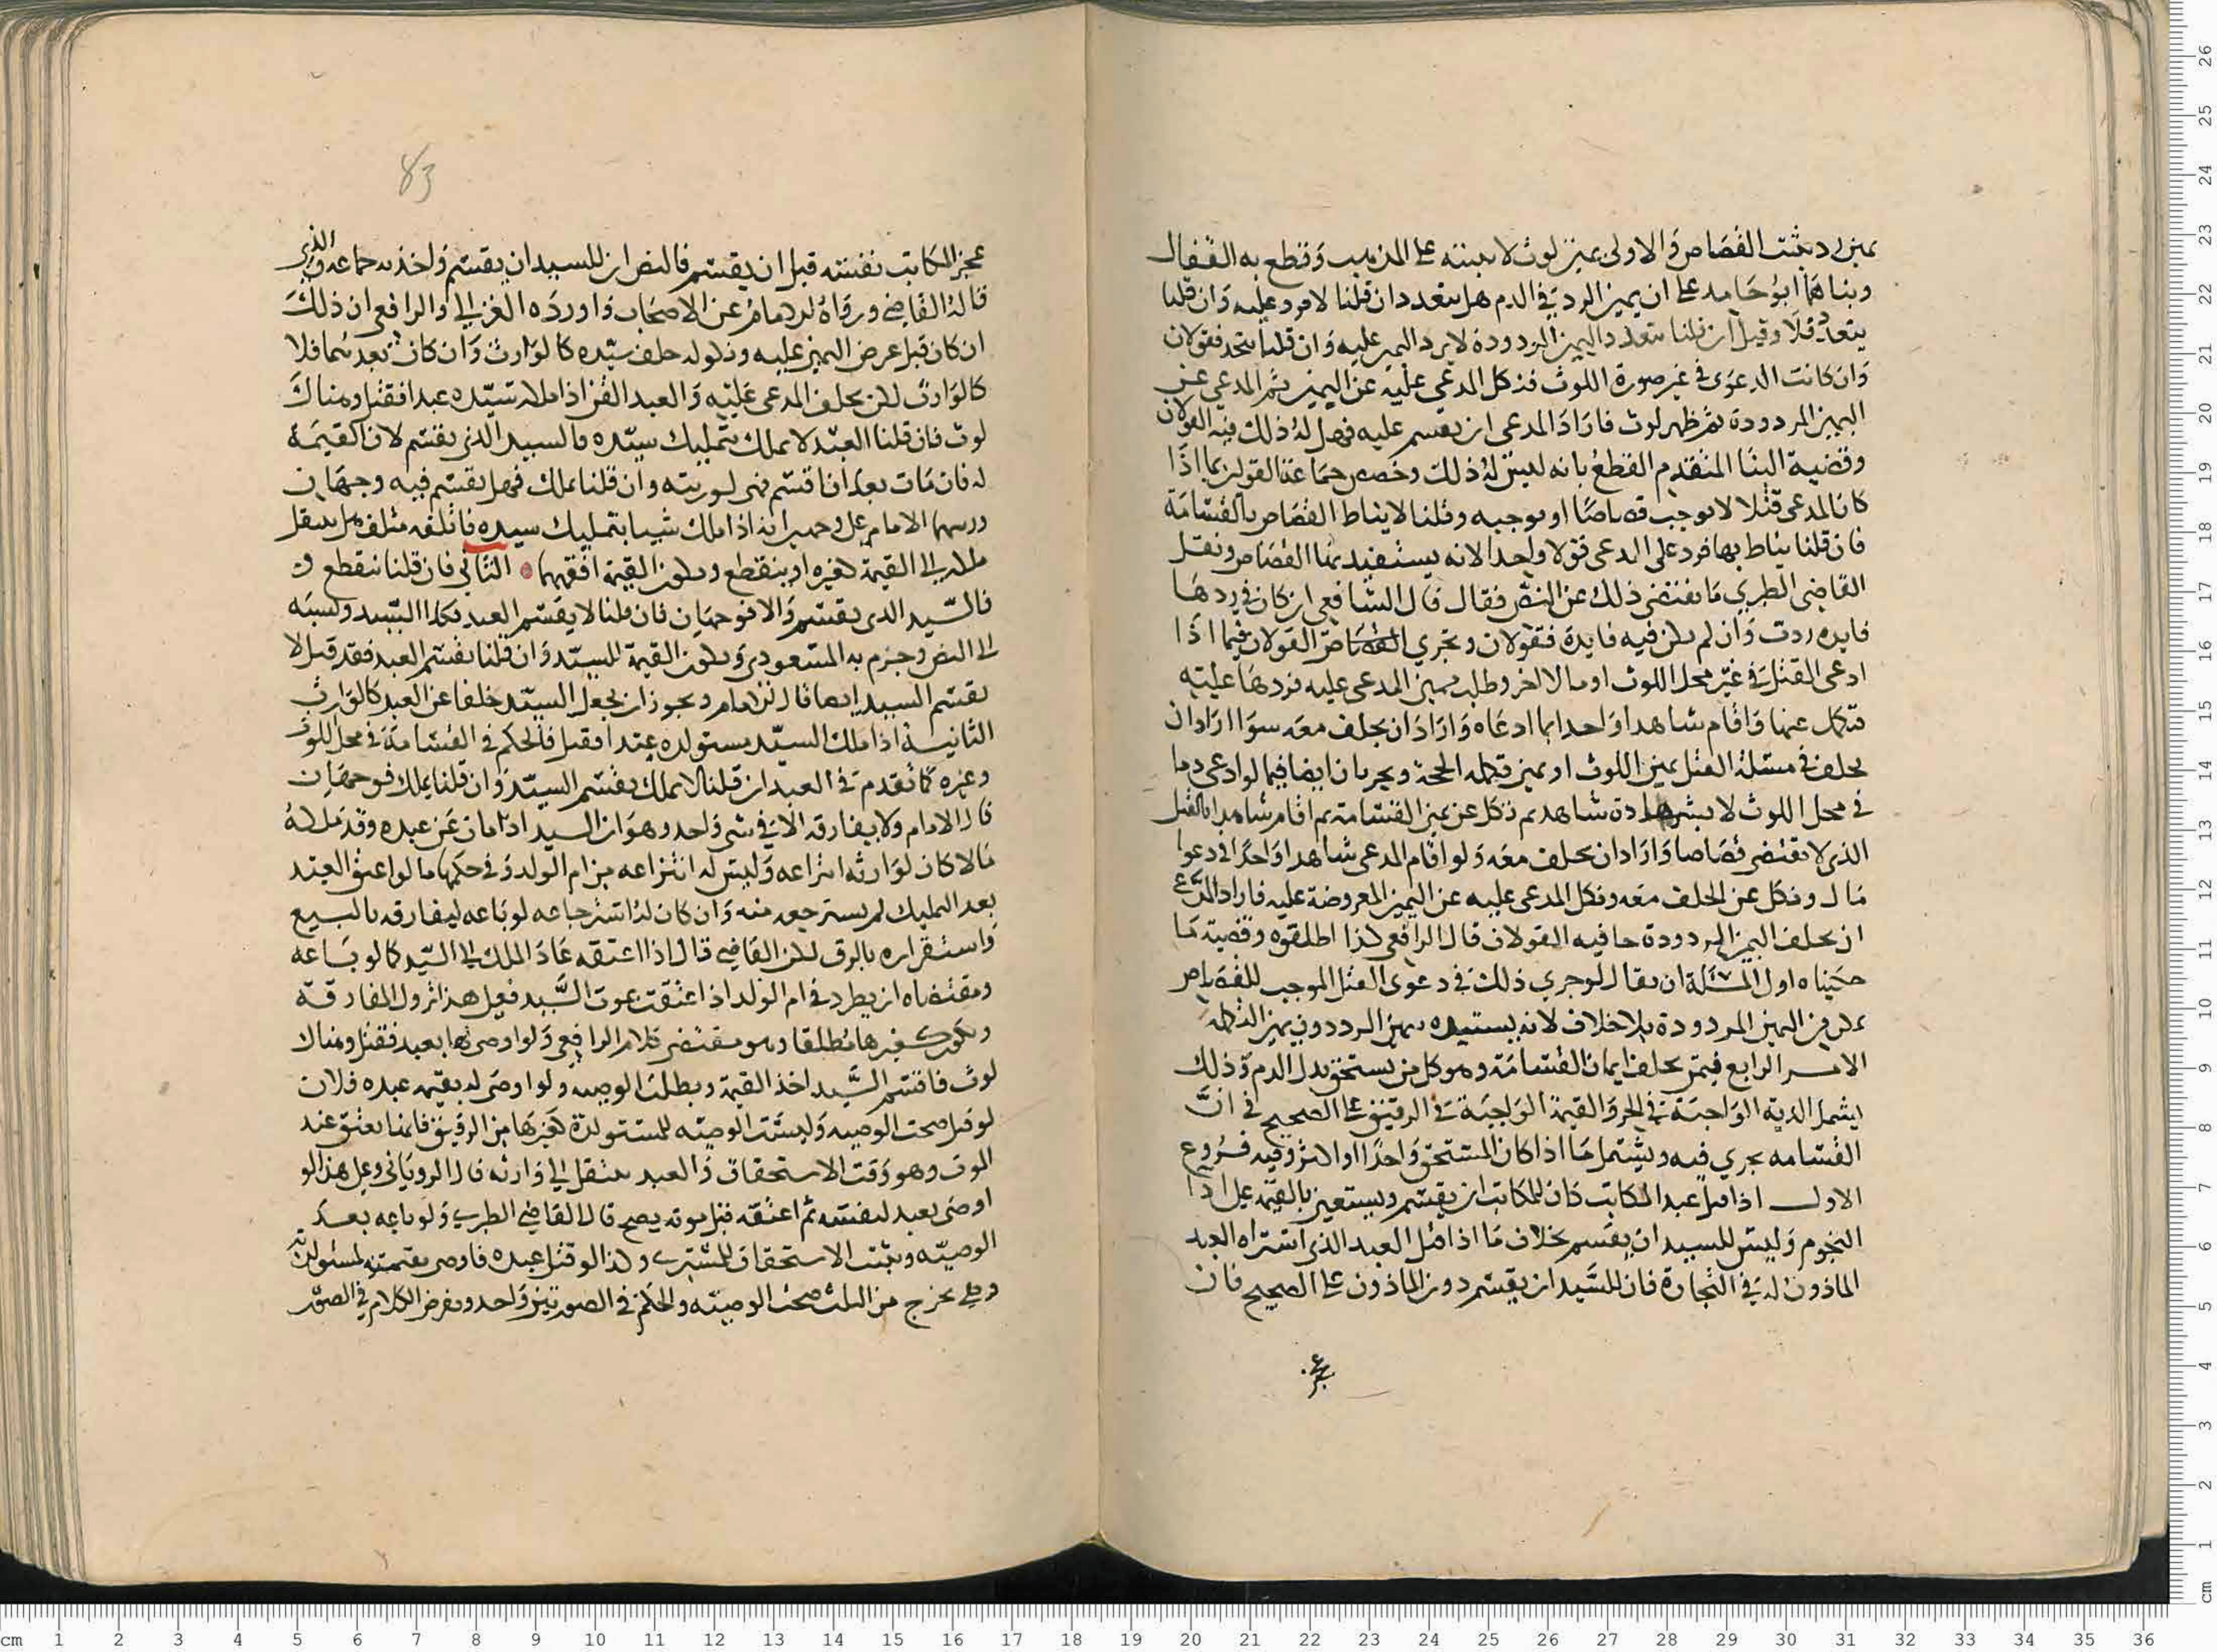 يمين رد يثبت القصاص والاولى يمين لوث لا يثبته على المذهب وقطع به القفال
وبناهما ابو حامد على ان يمين الرد في الدم هل يتعدد ان قلنا لا فرد عليه وان قلنا
يتعدد فلا وقيل ان قلنا يتعدد اليمين المردودة لا يرد اليمين عليه وان قلنا يتحد فقولان
وان كانت الدعوى في غير صورة اللوث فنكل المدعي عليه عن اليمين ثم المدعي عن
اليمين المردودة ثم ظهر لوث فاراد المدعي ان يقسم عليه فهل له ذلك فيه القولان
وقضية البنا المتقدم القطع بانه ليس له ذلك وخصص جماعة القولين بما اذا
كان المدعى قتلا لا يوجب قصاصا او يوجبه وقلنا لا يناط القصاص بالقسامة
فان قلنا يناط بها فرد على المدعي قولا واحدا لانه يستفيد بها القصاص ونقل
القاضي الطبري ما يقتضي ذلك عن النص فقال قال الشافعي ان كان في ردها
فايده ردت وان لم يكن فيه فايدة فقولان ويجري القولان فيما اذا
ادعى القتل في غير محل اللوث او مالا اخر وطلب يمين المدعى عليه فردها عليه
فنكل عنها واقام شاهدا واحدا بما ادعاه واراد ان يحلف معه سوا اراد ان
يحلف في مسئلة القتل يمين اللوث او يمين تكمله الحجة ويجريان ايضا فيما لو ادعى دما
في محل اللوث لا بشهادة شاهد ثم نكل عن يمين القسامة ثم اقام شاهدا بالقتل
الذي لا يقتضي قصاصا واراد ان يحلف معه ولو اقام المدعي شاهدا واحدا في دعوا
مال ونكل عن الحلف معه ونكل المدعى عليه عن اليمين المعروضة عليه فاراد المدعي
ان يحلف اليمين المردودة جا فيه القولان قال الرافعي كذا اطلقوه وقضية ما
حكيناه اول المسئلة ان يقال لو جرى ذلك في دعوى القتل الموجب للقصاص
يمكن من اليمين المردودة بلا خلاف لانه يستفيده بيمين الرد دون يمين التكمله
الامر الرابع فيمن يحلف ايمان القسامة وهو كل من يستحق بدل الدم وذلك
يشمل الدية الواجبة في الحر والقيمة الواجبة في الرقيق على الصحيح في ان
القسامه يجري فيه ويشتمل ما اذا كان المستحق واحدا او اكثر وفيه فروع
الاول اذا قتل عبد المكاتب كان للمكاتب ان يقسم ويستعين بالقيمة على اداء
النجوم وليس للسيد ان يقسم بخلاف ما اذا قتل العبد الذي اشتراه العبد
الماذون له في التجارة فان للسيد ان يقسم دون الماذون على الصحيح فان
83
عجز المكاتب نفسه قبل ان يقسم فالنص ان للسيد ان يقسم واخذ به جماعة والذي
قاله القاضي ورواه الامام عن الاصحاب واورده الغزالي والرافعي ان ذلك
ان كان قبل عرض اليمين عليه ونكوله حلف سيده كالوارث وان كان بعدهما فلا
كالوارث لكن يحلف المدعى عليه والعبد القن اذا ملكه سيده عبدا فقتل وهناك
لوث فان قلنا العبد لا يملك بتمليك سيده فالسيد الذي يقسم لان القيمة
له فان مات بعد ان اقسم فهي لورثته وان قلنا يملك فهل يقسم فيه وجهان
الامام على وجهين انه اذا ملك شيا بتمليك سيده فاتلفه متلف هل ينتقل
ملكه الى القيمة كغيره او ينقطع ويكون القيمة افقهما الثاني فان قلنا ينقطع
فالسيد الذي يقسم والا فوجهان فان قلنا لا يقسم العبد فكذا السيد ونسبه
الى النص وجزم به المسعودي ويكون القيمة للسيد وان قلنا يقسم العبد فقد قيل لا
يقسم السيد ايضا قال الامام ويجوز ان يجعل السيد خلفا عن العبد كالوارث
الثانية اذا ملك السيد مستولده عبدا فقتل فالحكم في القسامة في محل اللوث
وغيره كما تقدم في العبد ان قلنا لا يملك يقسم السيد وان قلنا يملك فوجهان
قال الامام ولا يفارقه الا في شي واحد وهو ان السيد اذا مات عن عبده وقد ملكه
مالا كان لوارثه انتزاعه وليس له انتزاعه من ام الولد وفي حكمها ما لو اعتق العبد
بعد التمليك لم يسترجعه منه وان كان له استرجاعه لو باعه ليفارقه بالبيع
واستقراره بالرق لكن القاضي قال اذا اعتقه عاد الملك الى السيد كما لو باعه
ومقتضاه ان يطرد في ام الولد اذا اعتقت بموت السيد فعلى هذا تزول المفارقة
وتكون كغيرها مطلقا وهو مقتضى كلام الرافعي ولو اوصى لها بعبد فقتل وهناك
لوث فاقسم السيد اخذ القيمة وبطلت الوصيه ولو اوصى له بقيمة عبده فلان
لو قتل صحت الوصيه وليست الوصيه للمستولدة كغيرها من الرقيق فانها تعتق عند
الموت وهو وقت الاستحقاق والعبد ينتقل الى وارثه قال الروياني وعلى هذا لو
اوصى لعبد لنفسه ثم اعتقه قبل موته يصح قال القاضي الطبري ولو باعه بعد
الوصية ويثبت الاستحقاق للمشتري وكذا لو قتل عبده فاوصى بقيمته لمستولدته
وهي تخرج من الثلث صحت الوصية والحكم في الصورتين واحد ويفرض الكلام في الصور